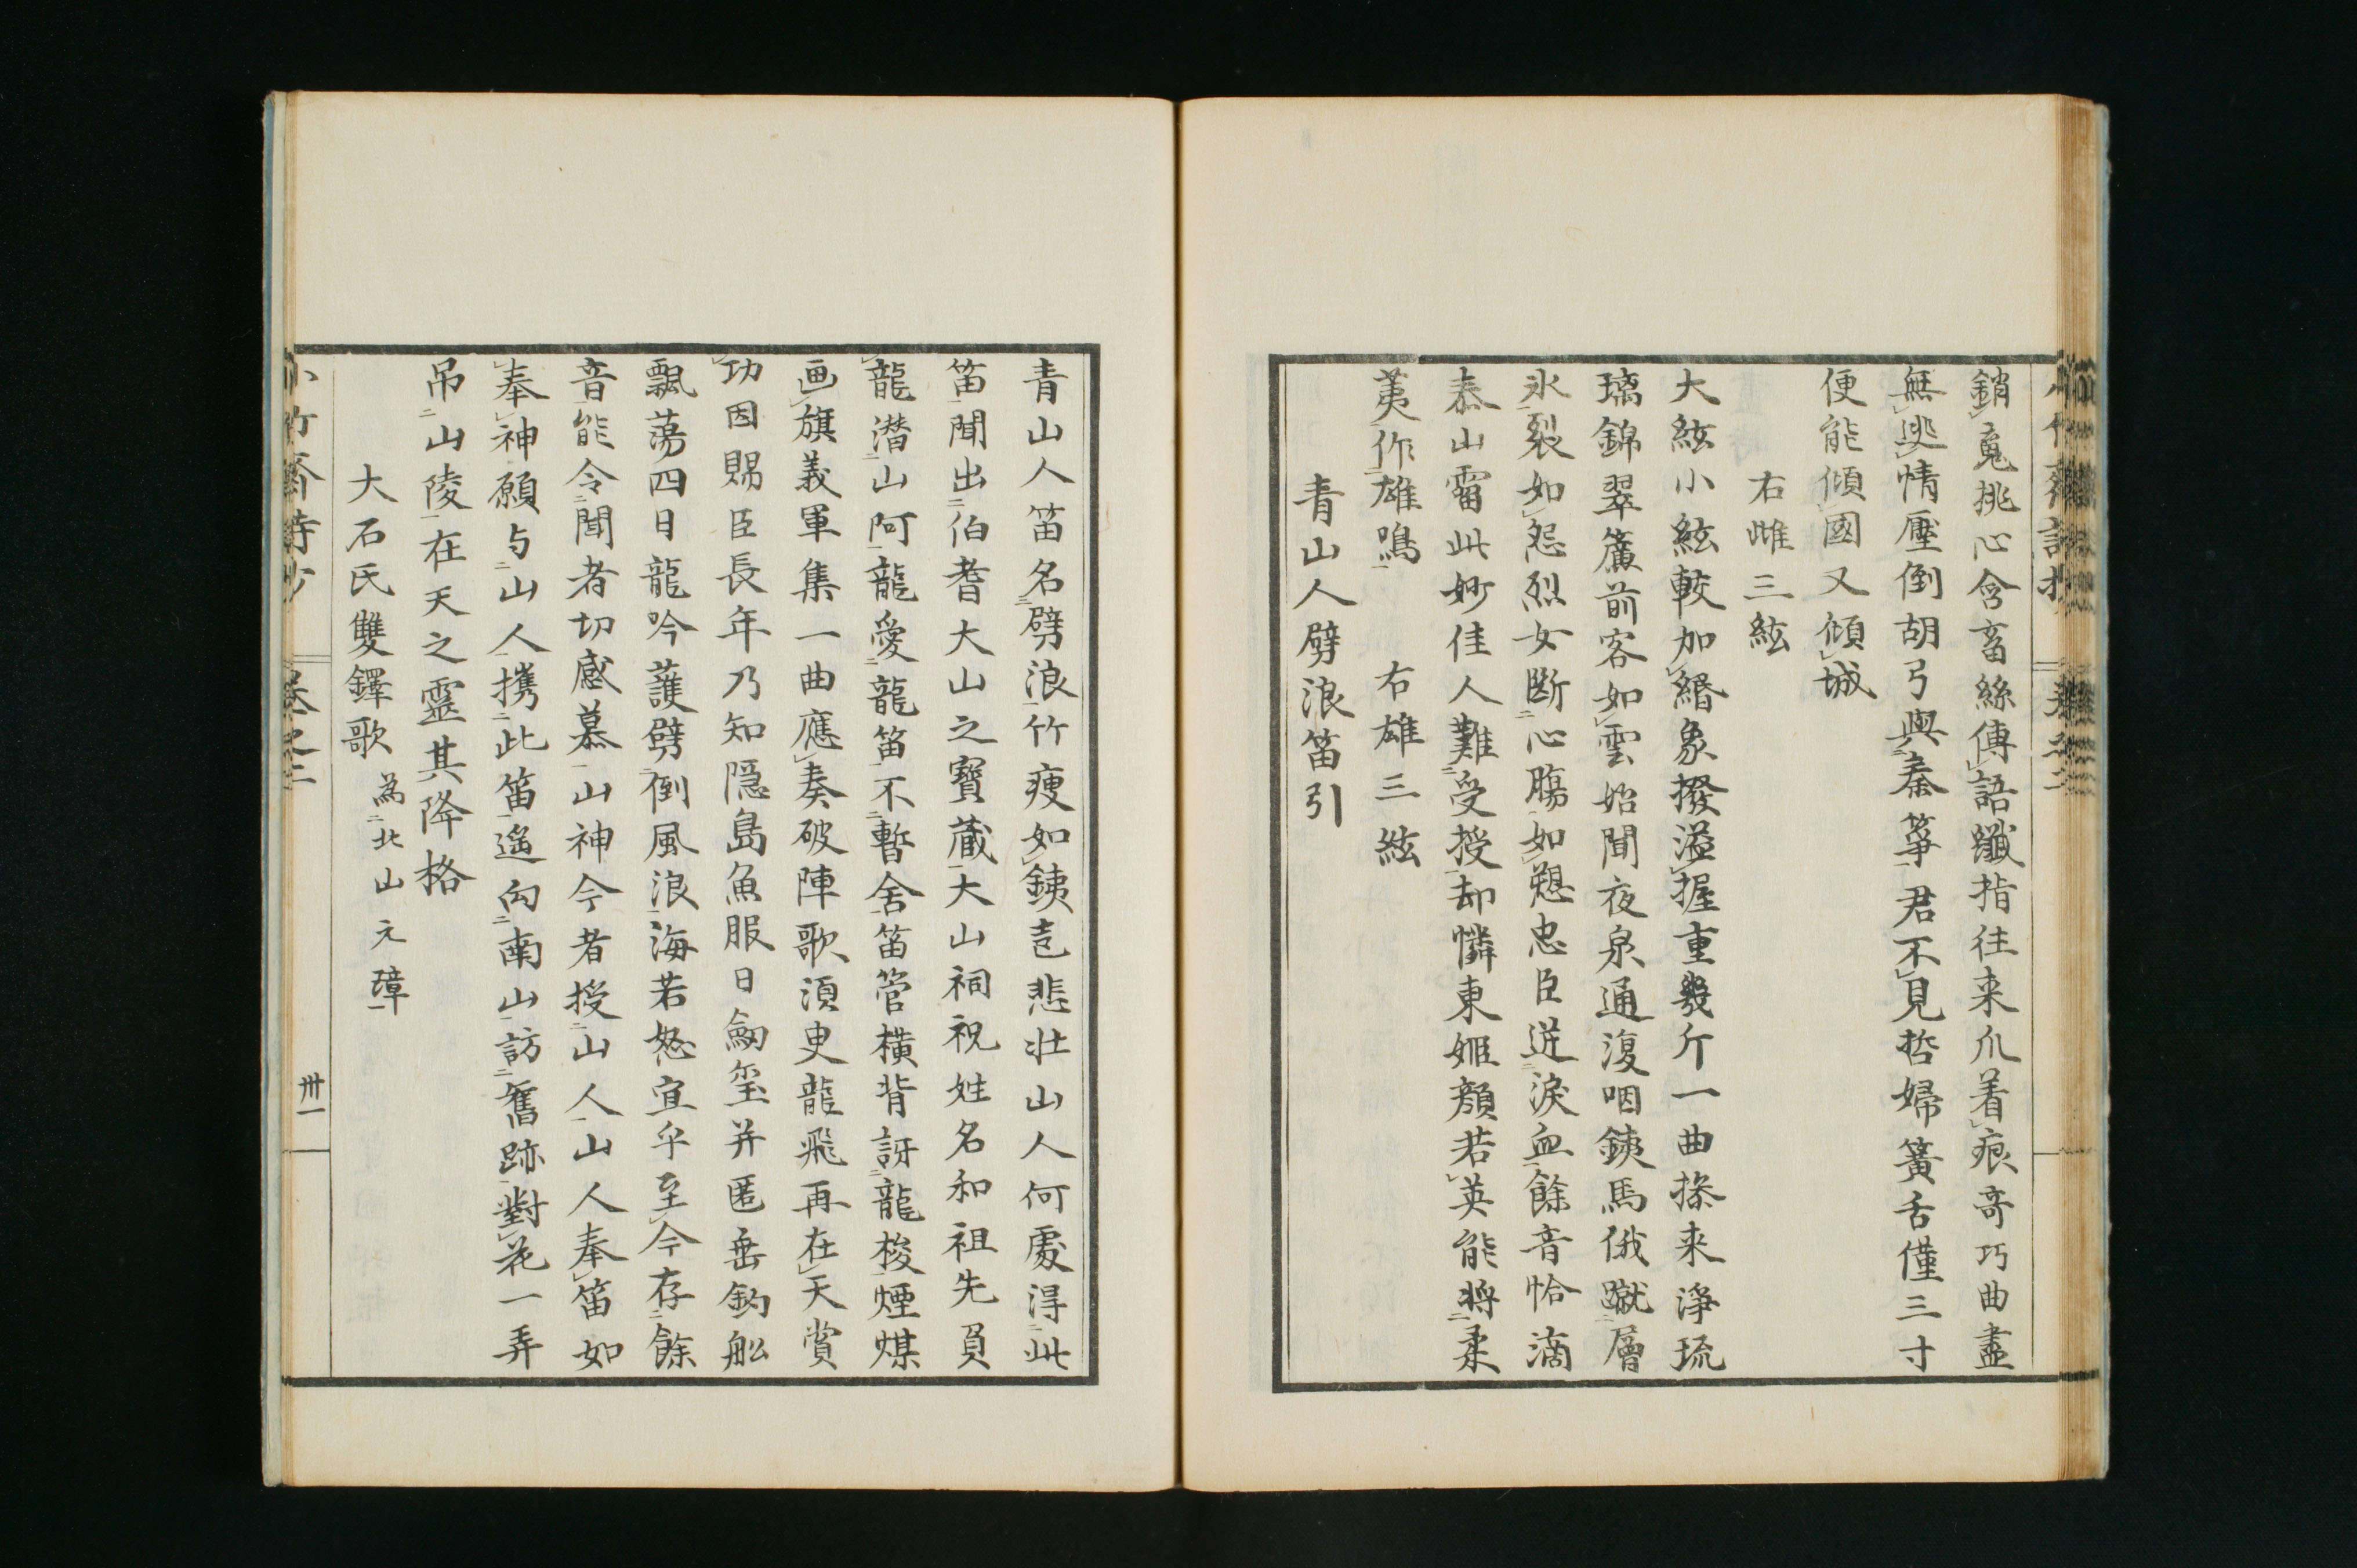 銷魂挑心含畜絲傳語纎指往来爪着痕奇巧曲盡
無逃情壓倒胡弓與秦箏君不見哲婦簧舌僅三寸
便能傾國又傾城
右雌三絃
大絃小絃較加緡象撥溢握重幾斤一曲搽来淨琉
璃錦翠簾前客如雲始聞夜泉通復咽銕馬俄蹴層
氷裂如怨烈女断心腸如愬忠臣迸淚血餘音恰滴
泰山霤此妙佳人難受授却憐東姬顏若英能將柔
荑作雄鳴　右雄三絃
青山人劈浪笛引
青山人笛名劈浪竹瘦如銕音悲壮山人何處淂此
笛聞出伯耆大山之寶蔵大山祠祝姓名和祖先負
龍潜山阿龍愛龍笛不暫舍笛管横背訝龍梭煙煤
画旗義軍集一曲應奏破陣歌湏臾龍飛再在天賞
功因賜臣長年乃知隠島魚服日劔璽并匿垂釣舩
飄蕩四日龍吟護劈倒風浪海若怒宜乎至今存餘
音能令聞者切感慕山神今者授山人山人奉笛如
奉神願与山人携此笛遙向南山訪舊跡對花一弄
吊山陵在天之靈其降格
大石氏雙鐸歌　為北山　元璋
小竹齋詩抄　卷之二　卅一